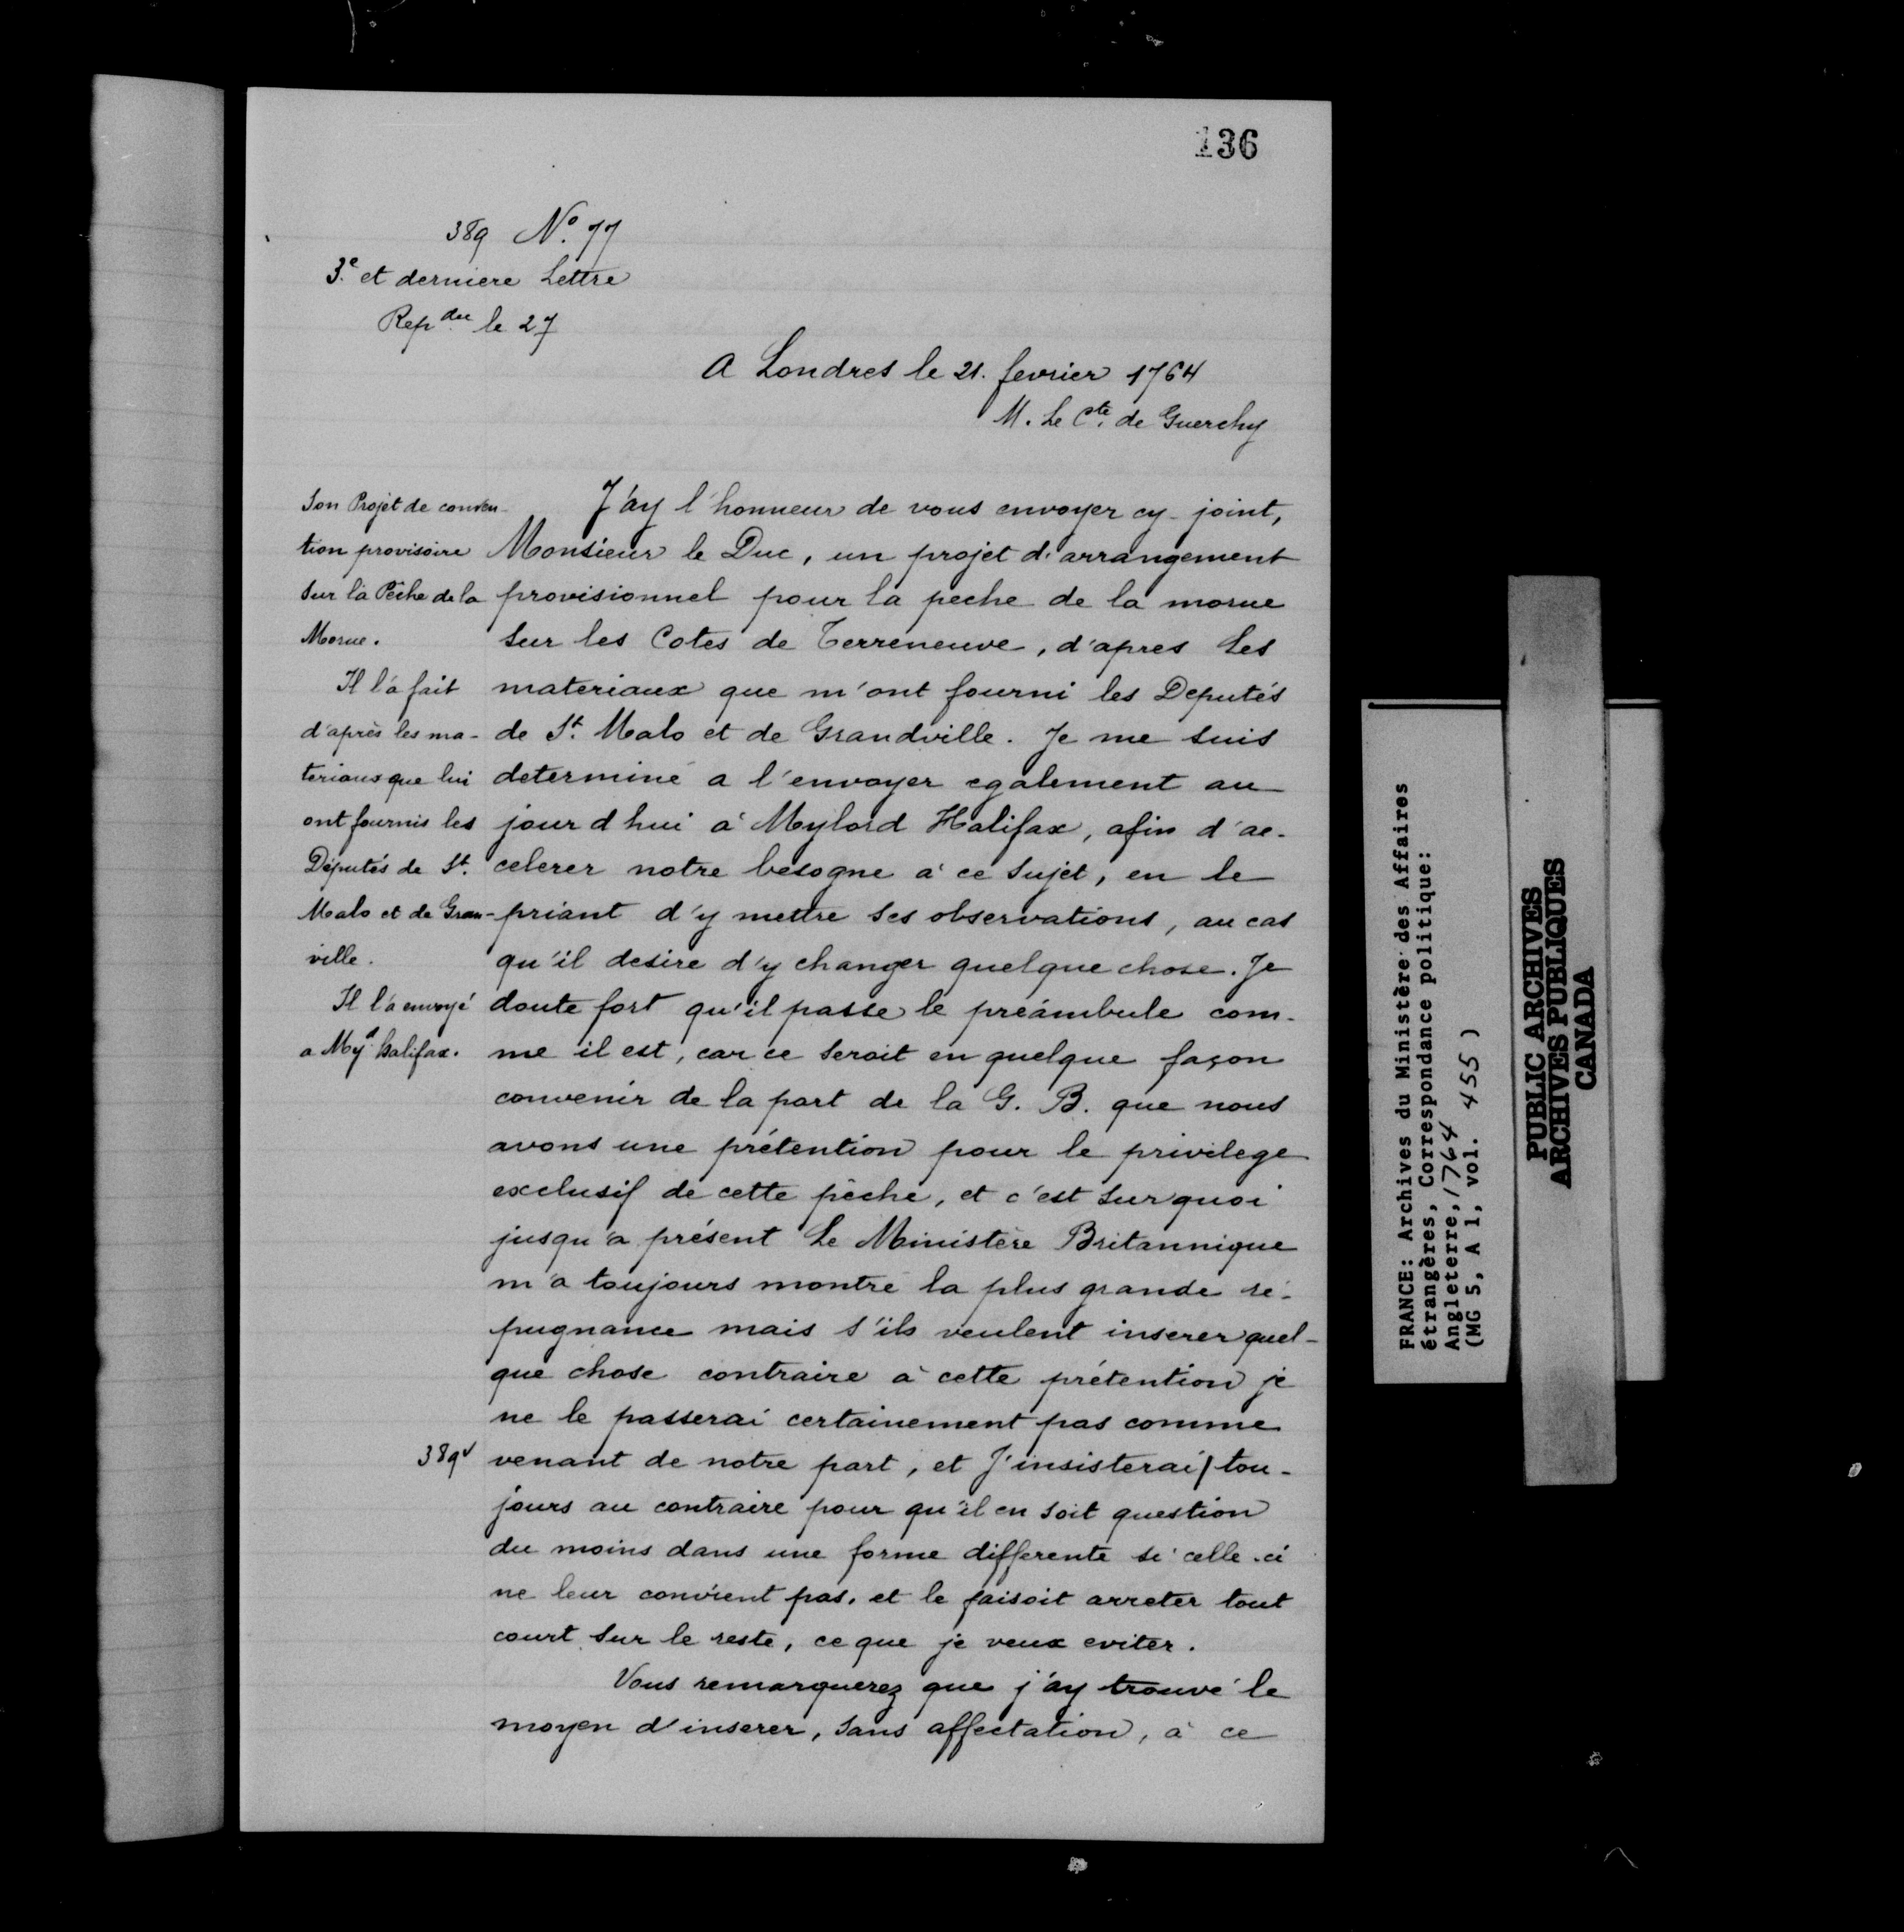 136
389 Nº. 77
3.e et derniere Lettre
Rep.due le 27
A Londres le 21. fevrier 1764
M. Le Cte. de Guerchy
Son Projet de conven-
tion provisoire
sur la Pêche de la
Morue.
Il l'a fait
d'après les ma-
teriaux que lui
ont fournis les
Députés de St.
Malo et de Gran-
ville.
Il l'a envoyé
a Myd. halifax.
J'ay l'honneur de vous envoyer cy-joint,
Monsieur le Duc, un projet d'arrangement
provisionnel pour la peche de la morue
sur les Cotes de Terreneuve, d'apres les
materiaux que m'ont fourni les Deputés
de St. Malo et de Grandville. Je me suis
determiné a l'envoyer egalement au-
jourd hui à Mylord Halifax, afin d'ac-
celerer notre besogne à ce sujet, en le
priant d'y mettre ses observations, au cas
qu'il desire d'y changer quelque chose. Je
doute fort qu'il passe le préambule com-
me il est, car ce seroit en quelque façon
convenir de la part de la G. B. que nous
avons une prétention pour le privilege
exclusif de cette pêche, et c'est sur quoi
jusqu'a présent Le Ministère Britannique
m'a toujours montré la plus grande ré-
pugnance mais s'ils veulent inserer quel-
que chose contraire à cette prétention je
ne le passerai certainement pas comme
389v venant de notre part, et J'insisterai/tou-
jours au contraire pour qu'il en soit question
du moins dans une forme differente si celle-ci
ne leur convient pas, et le faisoit arreter tout
court sur le reste, ce que je veux eviter.
Vous remarquerez que j'ay trouvé le
moyen d'inserer, sans affectation, à ce
FRANCE: Archives du Ministère des Affaires
étrangères, Correspondance politique:
Angleterre, 1764
(MG 5, A 1, vol. 455)
PUBLIC ARCHIVES
ARCHIVES PUBLIQUES
CANADA